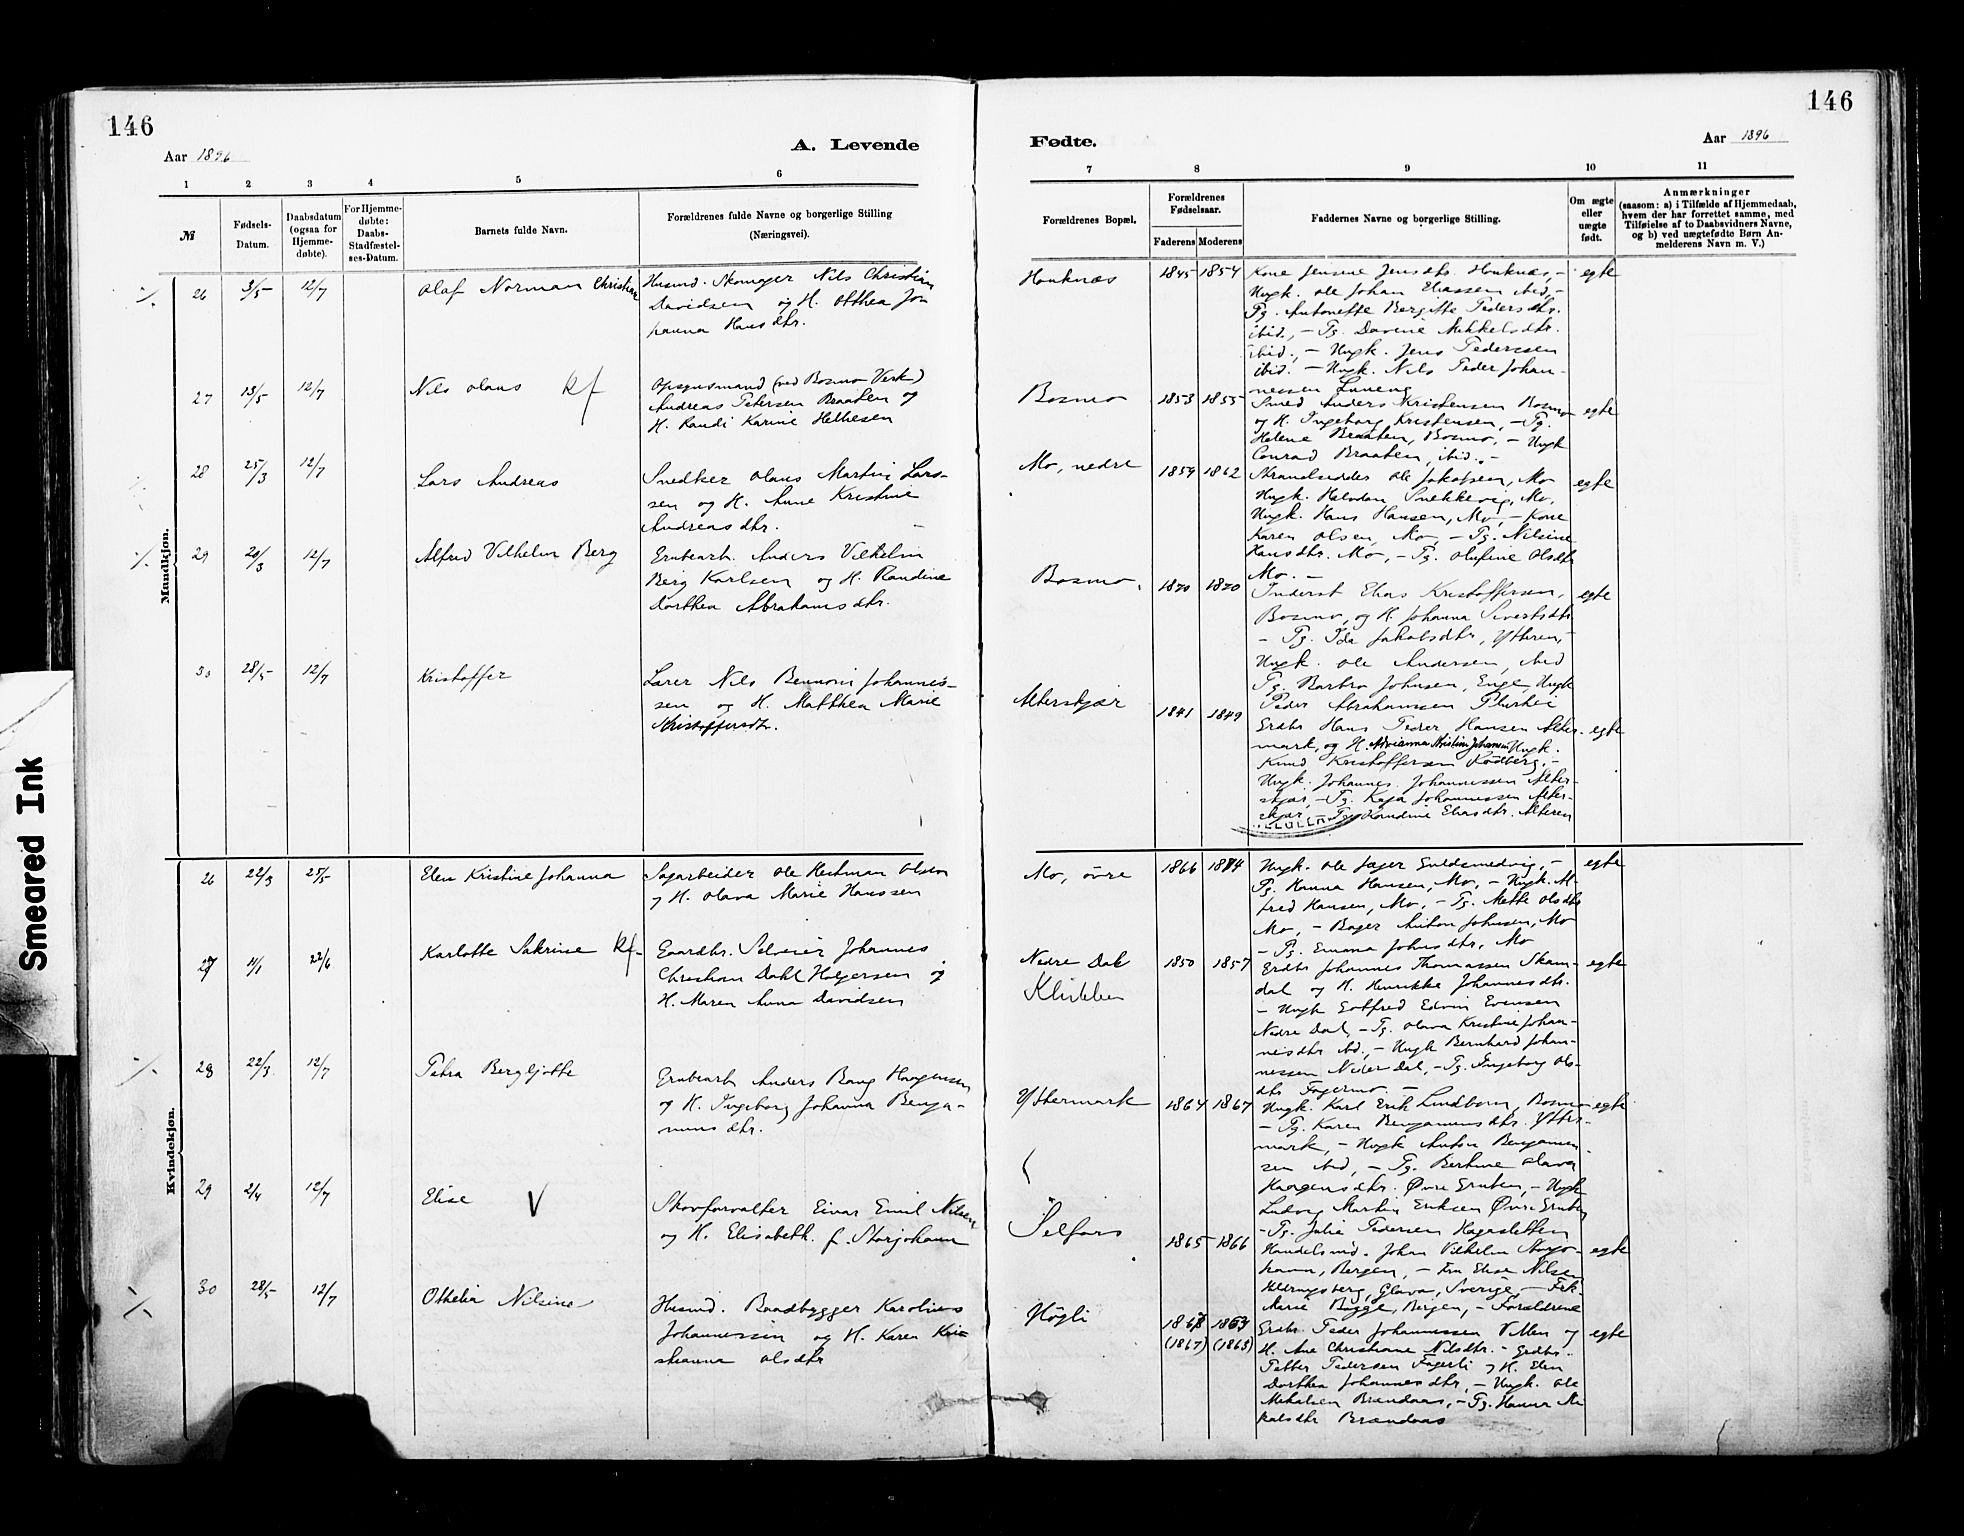 146
146
Aar 1896
A. Levende
Fødte.
Aar 1896
1
2
3
4
5
6
7
8
9
10
11
№
Fødsels-
Datum.
Daabsdatum
(ogsaa for
Hjemme-
døbte).
For Hjemme-
døbte:
Daabs-
Stadfæstel-
ses-Datum.
Barnets fulde Navn.
Forældrenes fulde Navne og borgerlige Stilling
(Næringsvei).
Forældrenes Bopæl.
Forældrenes
Fødselsaar.
Faderens
Moderens
Faddernes Navne og borgerlige Stilling.
Om ægte
eller
uægte
født.
Anmærkninger
(saasom: a) i Tilfælde af Hjemmedaab,
hvem der har forrettet samme, med
Tilføielse af to Daabsvidners Navne,
og b) ved uægtefødte Børn An-
melderens Navn m. V.)
Mandkjøn.
26
3/5
12/7
Olaf Norman Christian
Husmd. Skomager Nils Christian
Davidsen og H. Otthea Jo
hanna Hansdtr.
Hauknæs
1845
1854
Kone Jensine Jensdtr. Hauknæs, -
Ungk. Ole Johan Eliassen ibid, -
Pg. Antonette Bergitte Pedersdtr.
ibid., - Pg. Davine Mikkelsdtr.
ibid., - Ungk. Jens Pederssen
ibid. - Ungk. Nils Peder Johan-
nessen
egte
27
13/5
12/7
Nils Olaus Kf
Opsynsmand (ved Bosmo Verk)
Andreas Petersen Braaten og
H. Randi Karine Hellesen
Bosmo
1853
1855
Smed Anders Kristensen Bosmo
og H. Ingeborg Kristensen, - Pg.
Helene Braaten, Bosmo, - Ungk
Conrad Braaten, ibid. -
egte
28
25/3
12/7
Lars Andreas
Snedker Olaus Martin Lars-
sen og H. Anne Kristine
Andreasdtr.
Mo, nedre
1854
1862
Strandsidder Ole Jakobsen, Mo
Ungk. Halvdan Snekkevig, Mo,
Ungk. Hans Hansen, Mo, - Kone
Karen Olsen, Mo - Pg. Nilsine
Hansdtr. Mo, - Pg. Olufine Olsdtr
Mo. -
egte
29
20/3
12/7
Alfred Vilhelm Berg
Grubearb. Anders Vilhelm
Berg Karlsen og H. Randine
Dorthea Abrahamsdtr.
Bosmo,
1870
1870
Inderst Elias Kristoffersen,
Bosmo, og H. Johanna Sivertsdtr
- Pg. Ida Jakobsdtr, Ytteren, -
Ungk. Ole Andersen, ibid
Pg. Barbro Johnsen, Enge, Ungk
Peder Abrahamssen
egte
30
28/5
12/7
Kristoffer
Lærer Nils Bennoni Johannes-
sen og H. Matthea Marie
Kristoffersdtr.
Alterskjær
1841
1849
Grdbr Hans Peder Hansen Alter-
mark, og H. Adrianna Kristine Johansen Ungk.
Knud Kristoffersen Rødberg, -
Ungk. Johannes Johannessen Alter-
skjær, - Pg. Kaja Johannessen Alter-
skjær - Pg. Randine Eliasdtr. Alteren
egte
Kvindekjøn.
26
22/3
25/5
Elen Kristine Johanna
Sagarbeider Ole Hestman Olsen
og H. Olava Marie Hanssen
Mo, övre
1866
1874
Ungk. Ole Jæger Guldsmedvig, -
Pg. Hanna Hansen, Mo, - Ungk. Al-
fred Hansen, Mo, - Pg. Mette Olsdtr
Mo, - Bager Anton Johnsen, Mo
- Pg. Emma Johnsdtr, Mo
egte
27
11/1
22/6
Karlotte Sakrine Kf.
Gaardbr. Selveier Johannes
Christian Dahl Holgersen og
H. Maren Anna Davidsen
Nedre Dal
Klubben
1850
1857
Grdbr Johannes Thomassen Skam-
dal og H. Henrikke Johannesdtr.
- Ungk Gotfred Edvin Evensen
Nedre Dal, - Pg. Olava Kristine Johan-
nesdtr ibd, - Ungk Bernhard Johan-
nessen Neder Dal, - Pg. Ingeborg Ols-
dtr Fagermo. -
egte
28
22/3
12/7
Petra Bergljotte
Grubearb Anders Bang Haagensen
og H. Ingeborg Johanna Benja-
minsdtr.
Yttermark
1864
1867
Ungk. Karl Erik Lindbom, Bosmo
- Pg. Karen Benjaminsdtr. Ytter-
mark, - Ungk Anton Benjamin-
sen ibid, - Pg. Berhine Olava
Haagensdtr. Øvre Gruben, - Ungk
Ludvig Martin Eriksen Øvre Gruben
- Pg. Julie Pedersen Hagesletten
egte
29
2/4
12/7
Elise V
Skovforvalter Einar Emil Nilsen
og H. Elisabeth f. Storjohann
Selfors
1865
1866
Handelsmd. Johan Vilhelm Storjo-
hann, Bergen, - Fru Elise Nilsen
Glava, Sverige, - Frk.
Marie Bøgge, Bergen, - Forældrene
egte
30
28/5
12/7
Othelia Nilsine
Husmd. Baadbygger Karolius
Johannessen og H. Karen Kri-
stianna Olsdtr
Högli
1867
1863
(1867)
(1863)
Grdbr. Peder Johannessen Villen og
H. Ane Christiane Nilsdtr. - Grdbr.
Petter Pedersen Fagerli og H. Elen
Dorthea Johannesdtr, - Ungk. Ole
Mikalsen Brendaas, - Pg. Hanna Mi
kalsdtr Brendaas
egte
Smeared Ink